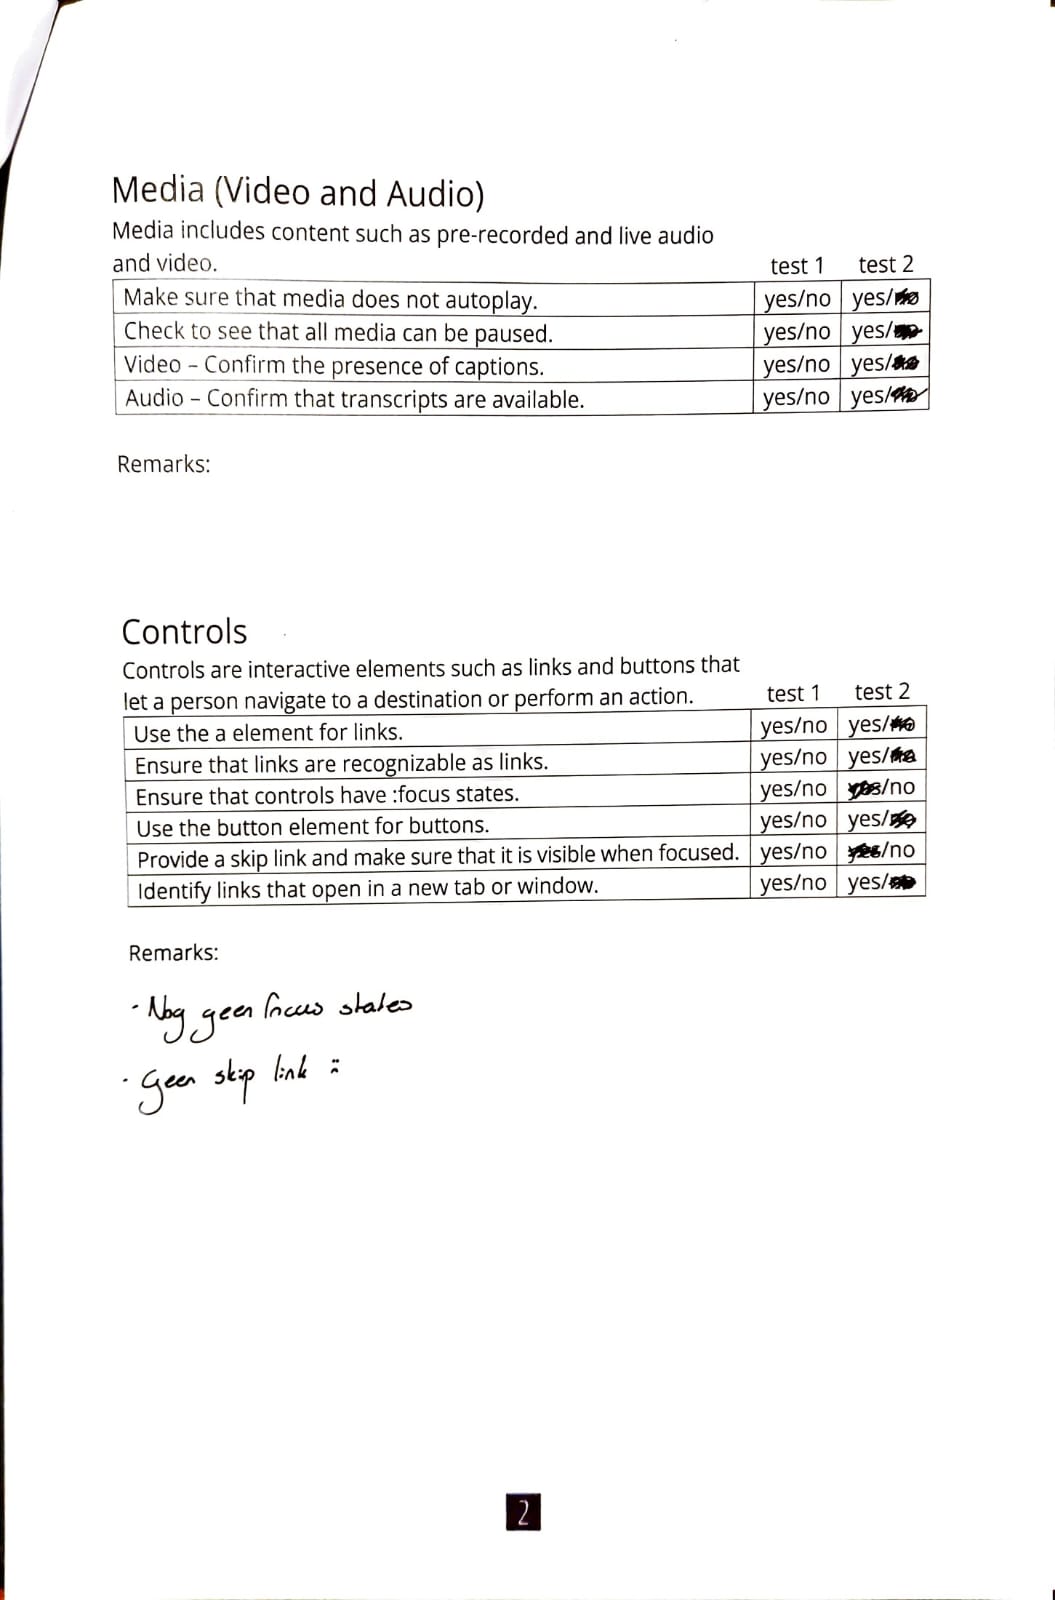 Media (Video and Audio)
Media includes content such as pre-recorded and live audio
and video. test 1 test 2
Make sure that media does not autoplay. yes/no yes/no
Check to see that all media can be paused. yes/no yes/no
Video – Confirm the presence of captions. yes/no yes/no
Audio – Confirm that transcripts are available. yes/no yes/no
Remarks:
Controls
Controls are interactive elements such as links and buttons that
let a person navigate to a destination or perform an action. test 1 test 2
Use the a element for links. yes/no yes/no
Ensure that links are recognizable as links. yes/no yes/no
Ensure that controls have :focus states. yes/no yes/no
Use the button element for buttons. yes/no yes/no
Provide a skip link and make sure that it is visible when focused. yes/no yes/no
Identify links that open in a new tab or window. yes/no yes/no
Remarks:
- Nog geen focus states
- Geen skip link :(
2